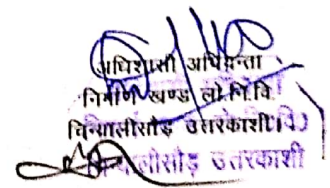 अधिशासी अभियन्ता
निर्माण खण्ड लो.नि.वि.
चिन्यालीसौड़ उत्तरकाशी
चिन्यालीसौड़ उत्तरकाशी